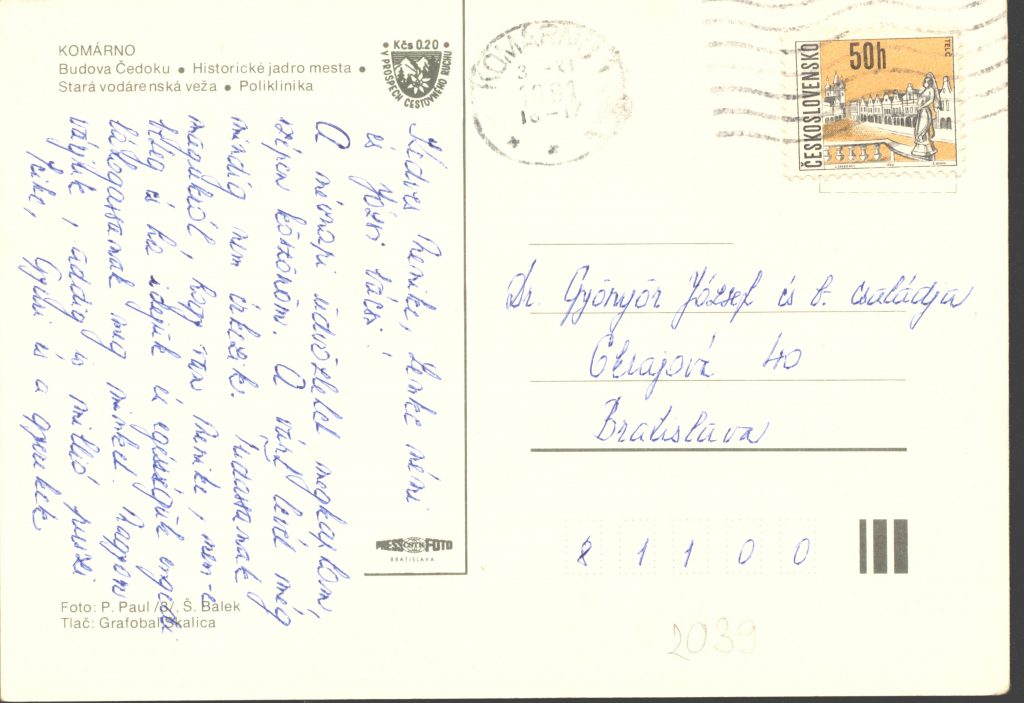 KOMÁRNO
Budova Čedoku • Historické jadro mesta •
Stará vodárenská veža • Poliklinika
Kčs 0.20
V PROSPECH CESTOVNÉHO RUCHU
Kedves Renike, Lenke néni
és Józsi bácsi!
A névnapi üdvözletet megkaptam,
szépen köszönöm. A várt levél még
mindig nem érkezik. Tudassanak
magukról, hogy van Renike, nem-e
és ha idejük és egészségük engedi
látogassanak meg minket. Nagyon
várjuk, addig is millió puszi
Icike, Gyuri és a gyerekek
PRESSFOTO
BRATISLAVA
Foto: P. Paul /3/, Š. Bálek
Tlač: Grafobal Skalica
KOMÁRNO 1
ČESKOSLOVENSKO
50h
TELČ
Dr. Gyönyör József és b. családja
Okrajová 40
Bratislava
8 1 1 0 0
2039